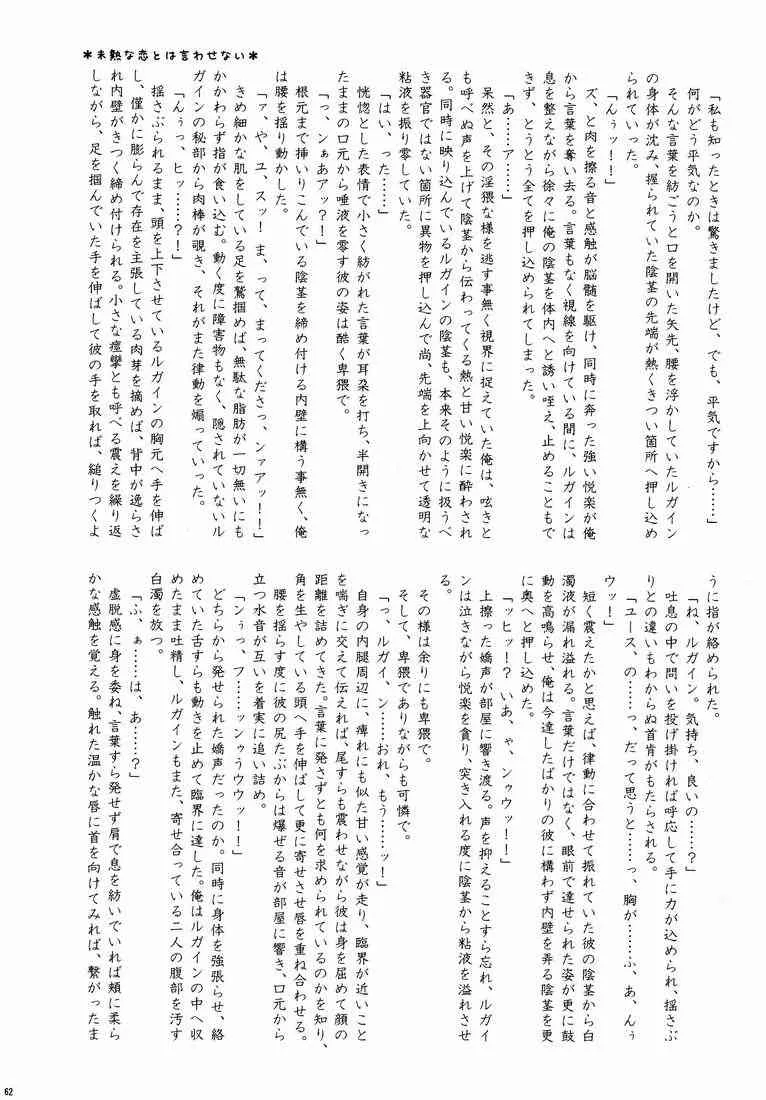 ＊未熟な恋とは言わせない＊
「私も知ったときは驚きましたけど、でも、平気ですから……」
何がどう平気なのか。
そんな言葉を紡ごうと口を開いた矢先、腰を浮かしていたルガイン
の身体が沈み、握られていた陰茎の先端が熱くきつい箇所へ押し込め
られていった。
「んぅッ！」
ズ、と肉を擦る音と感触が脳髄を駆け、同時に奔った強い悦楽が俺
から言葉を奪い去る。言葉もなく視線を向けている間に、ルガインは
息を整えながら徐々に俺の陰茎を体内へと誘い咥え、止めることもで
きず、とうとう全てを押し込められてしまった。
「あ……ア……」
呆然と、その淫猥な様を逃す事無く視界に捉えていた俺は、呟きと
も呼べぬ声を上げて陰茎から伝わってくる熱と甘い悦楽に酔わされ
る。同時に映り込んでいるルガインの陰茎も、本来そのように扱うべ
き器官ではない箇所に異物を押し込んで尚、先端を上向かせて透明な
粘液を振り零していた。
「はい、った……」
恍惚とした表情で小さく紡がれた言葉が耳朶を打ち、半開きになっ
たままの口元から唾液を零す彼の姿は酷く卑猥で。
「っ、ンぁあアッ？」
根元まで挿いりこんでいる陰茎を締め付ける内壁に構う事無く、俺
は腰を揺り動かした。
「ァ、や、ユ、スッ！ま、って、まってくださっ、ンァアッ！！」
きめ細かな肌をしている足を鷲掴めば、無駄な脂肪が一切無いにも
かかわらず指が食い込む。動く度に障害物もなく、隠されていないル
ガインの秘部から肉棒が覗き、それがまた律動を煽っていった。
「んぅっ、ヒッ……？！」
揺さぶられるまま、頭を上下させているルガインの胸元へ手を伸ば
し、僅かに膨らんで存在を主張している肉芽を摘めば、背中が逸らさ
れ内壁がきつく締め付けられる。小さな痙攣とも呼べる震えを繰り返
しながら、足を掴んでいた手を伸ばして彼の手を取れば、縋りつくよ
うに指が絡められた。
「ね、ルガイン。気持ち、良いの……？」
吐息の中で問いを投げ掛ければ呼応して手に力が込められ、揺さぶ
りとの違いもわからぬ首肯がもたらされる。
「ユース、の……っ、だって思うと……っ、胸が……ふ、あ、んぅ
ウッ！」
短く震えたかと思えば、律動に合わせて振れていた彼の陰茎から白
濁液が漏れ溢れる。言葉だけではなく、眼前で達せられた姿が更に鼓
動を高鳴らせ、俺は今達したばかりの彼に構わず内壁を弄る陰茎を更
に奥へと押し込めた。
「ッヒッ！？いあ、ゃ、ンゥウッ！」
上擦った嬌声が部屋に響き渡る。声を抑えることすら忘れ、ルガイ
ンは泣きながら悦楽を貪り、突き入れる度に陰茎から粘液を溢れさせ
る。
その様は余りにも卑猥で。
そして、卑猥でありながらも可憐で。
「っ、ルガイ、ン……おれ、もう……ッ！」
自身の内腿周辺に、痺れにも似た甘い感覚が走り、臨界が近いこと
を喘ぎに交えて伝えれば、尾すらも震わせながら彼は身を屈めて顔の
距離を詰めてきた。言葉に発さずとも何を求められているのかを知り、
角を生やしている頭へ手を伸ばして更に寄せさせ唇を重ね合わせる。
腰を揺らす度に彼の尻たぶからは爆ぜる音が部屋に響き、口元から
立つ水音が互いを着実に追い詰め。
「ンぅっ、フ……ッンぅうウウッ！！」
どちらから発せられた嬌声だったのか。同時に身体を強張らせ、絡
めていた舌すらも動きを止めて臨界に達した。俺はルガインの中へ収
めたまま吐精し、ルガインもまた、寄せ合っている二人の腹部を汚す
白濁を放つ。
「ふ、ぁ……は、あ……？」
虚脱感に身を委ね、言葉すら発せず肩で息を紡いでいれば頬に柔ら
かな感触を覚える。触れた温かな唇に首を向けてみれば、繋がったま
62